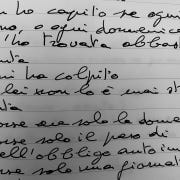 ho capito se ogni
o ogni domenica
l'ho trovata abbas
nta
mi ha colpito
lei non lo è mai st
ta
orse era solo la dome
orse solo il peso di
ell'obbligo autoim
rse solo una giornat